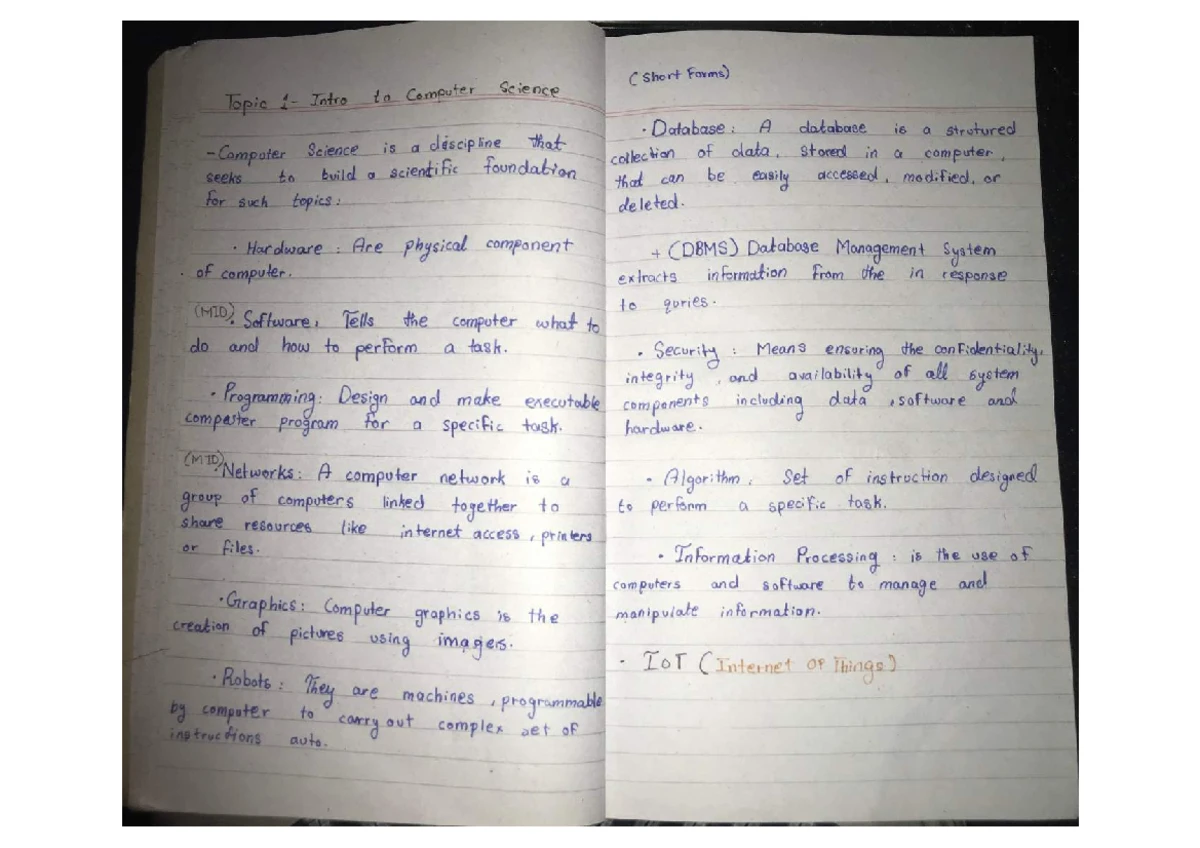 Topic 1- Intro to Computer Science
- Computer Science is a discipline that
seeks to build a scientific foundation
for such topics:
· Hardware : Are physical component
of computer.
(MID)
· Software, Tells the computer what to
do and how to perform a task.
· Programming: Design and make executable
computer program for a specific task.
(MID)
· Networks: A computer network is a
group of computers linked together to
share resources like internet access, printers
or files.
· Graphics: Computer graphics is the
creation of pictures using imagers.
· Robots: They are machines, programmable
by computer to carry out complex set of
instructions auto.
(Short Forms)
· Database: A database is a strutured
collection of data, stored in a computer,
that can be easily accessed, modified, or
deleted.
+ (DBMS) Database Management System
extracts information from the in response
to quries.
· Security: Means ensuring the confidentiality,
integrity, and availability of all system
components including data, software and
hardware.
· Algorithm, Set of instruction designed
to perform a specific task.
· Information Processing: is the use of
computers and software to manage and
manipulate information.
· IoT (Internet OF Things)